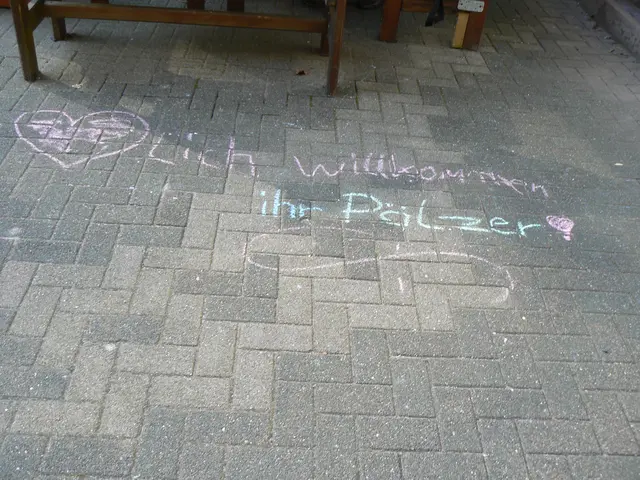 lich willkommen
ihr Pälzer!